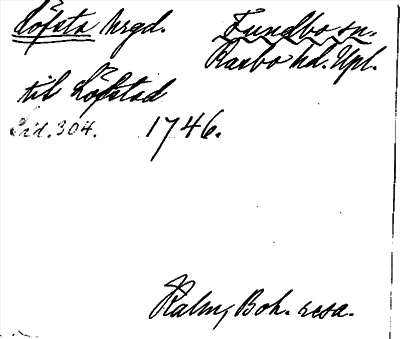 Löfsta hrgd. Funbo sn.
Rasbo hd. Upl.
til Löfstad
Sid. 304. 1746.
Kalm, Boh. resa.